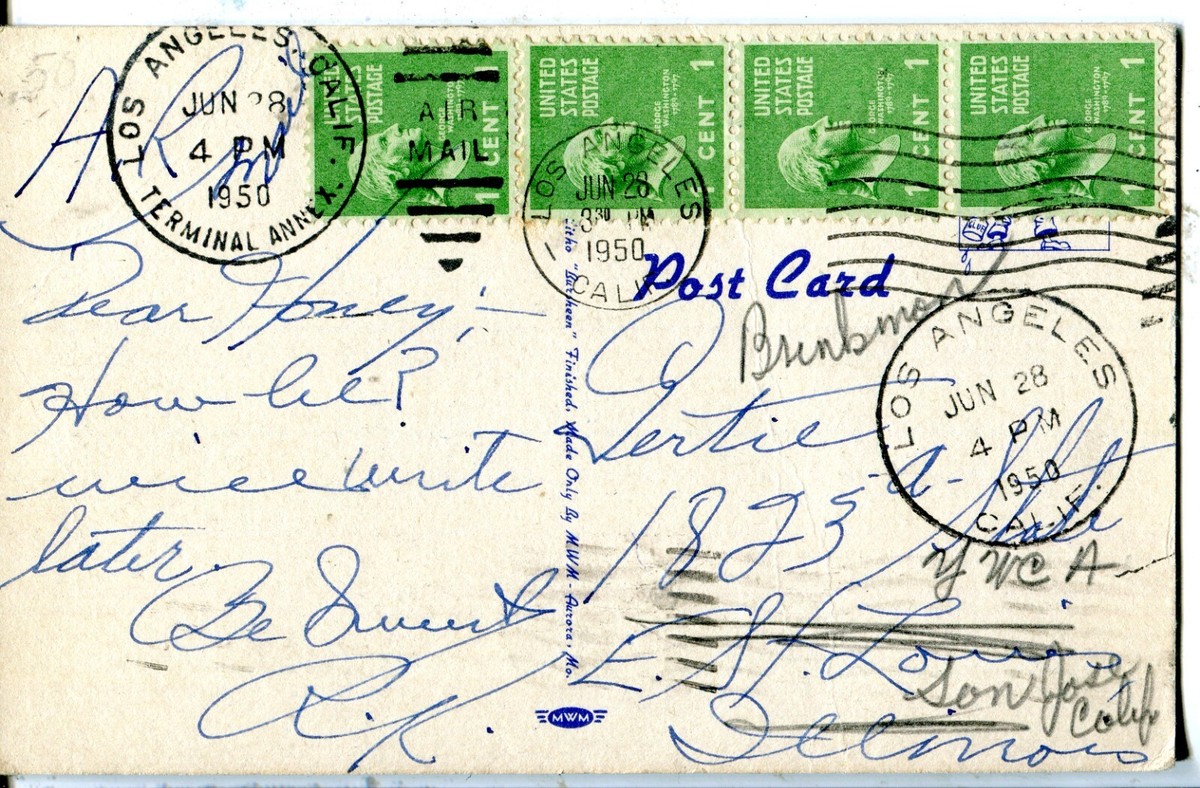 LOS ANGELES, CALIF.
JUN 28
4 PM
1950
TERMINAL ANNEX
AIR
MAIL
UNITED
STATES
POSTAGE
GEORGE
WASHINGTON
1789-1797
1
CENT
1
UNITED
STATES
POSTAGE
GEORGE
WASHINGTON
1789-1797
1
CENT
1
UNITED
STATES
POSTAGE
GEORGE
WASHINGTON
1789-1797
1
CENT
1
UNITED
STATES
POSTAGE
GEORGE
WASHINGTON
1789-1797
1
CENT
1
LOS ANGELES
JUN 28
3 30 PM
1950
CALIF.
Post Card
LOS ANGELES
JUN 28
4 PM
1950
CALIF.
Dear Honey;—
How be?
will write
later.
Be Sweet
R.K.
Litho "Curteen" Finished, Made Only By MWM - Aurora, Mo.
MWM
Gertie Brinkman
1823 A-
E. St. Louis
Illinois
YWCA
San Jose
Calif